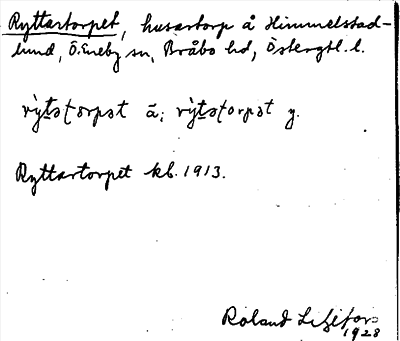 Ryttartorpet, husartorp å Himmelstad-
lund, Ö. Eneby sn, Bråbo hd, Östergtl. l.
ä; y.
Ryttartorpet kb. 1913.
Roland Liljefors
1928